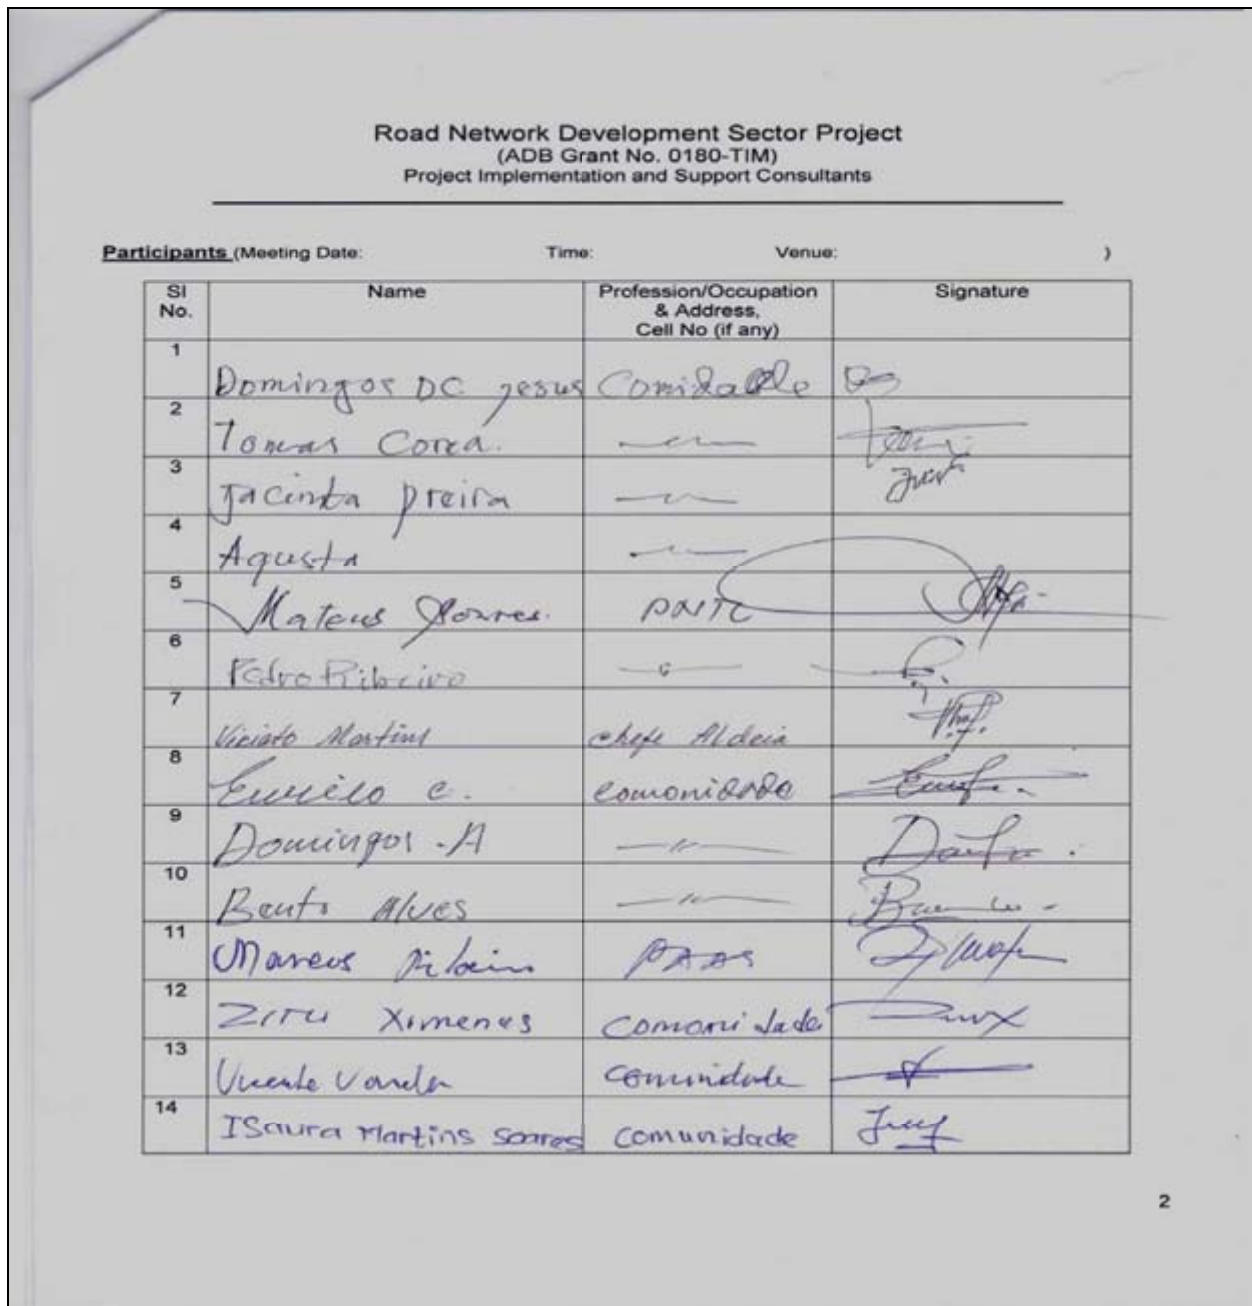 Road Network Development Sector Project
(ADB Grant No. 0180-TIM)
Project Implementation and Support Consultants
Participants (Meeting Date: Time: Venue: )
Sl No. Name Profession/Occupation & Address, Cell No (if any) Signature
1 Domingos DC Jesus
2 Tomas Correa.
3 Jacinta Preira
4 Agusta
5 Mateus Soares. PNTL
6 Pedro Ribeiro
7 Viciato Martins chefe Aldeia
8 Eurico C. comonidade
9 Domingos .A
10 Bento Alves
11 Marcos Ribeiro
12 Ximenes comonidade
13 Vicente comunidade
14 ISaura Martins Soares comunidade
2